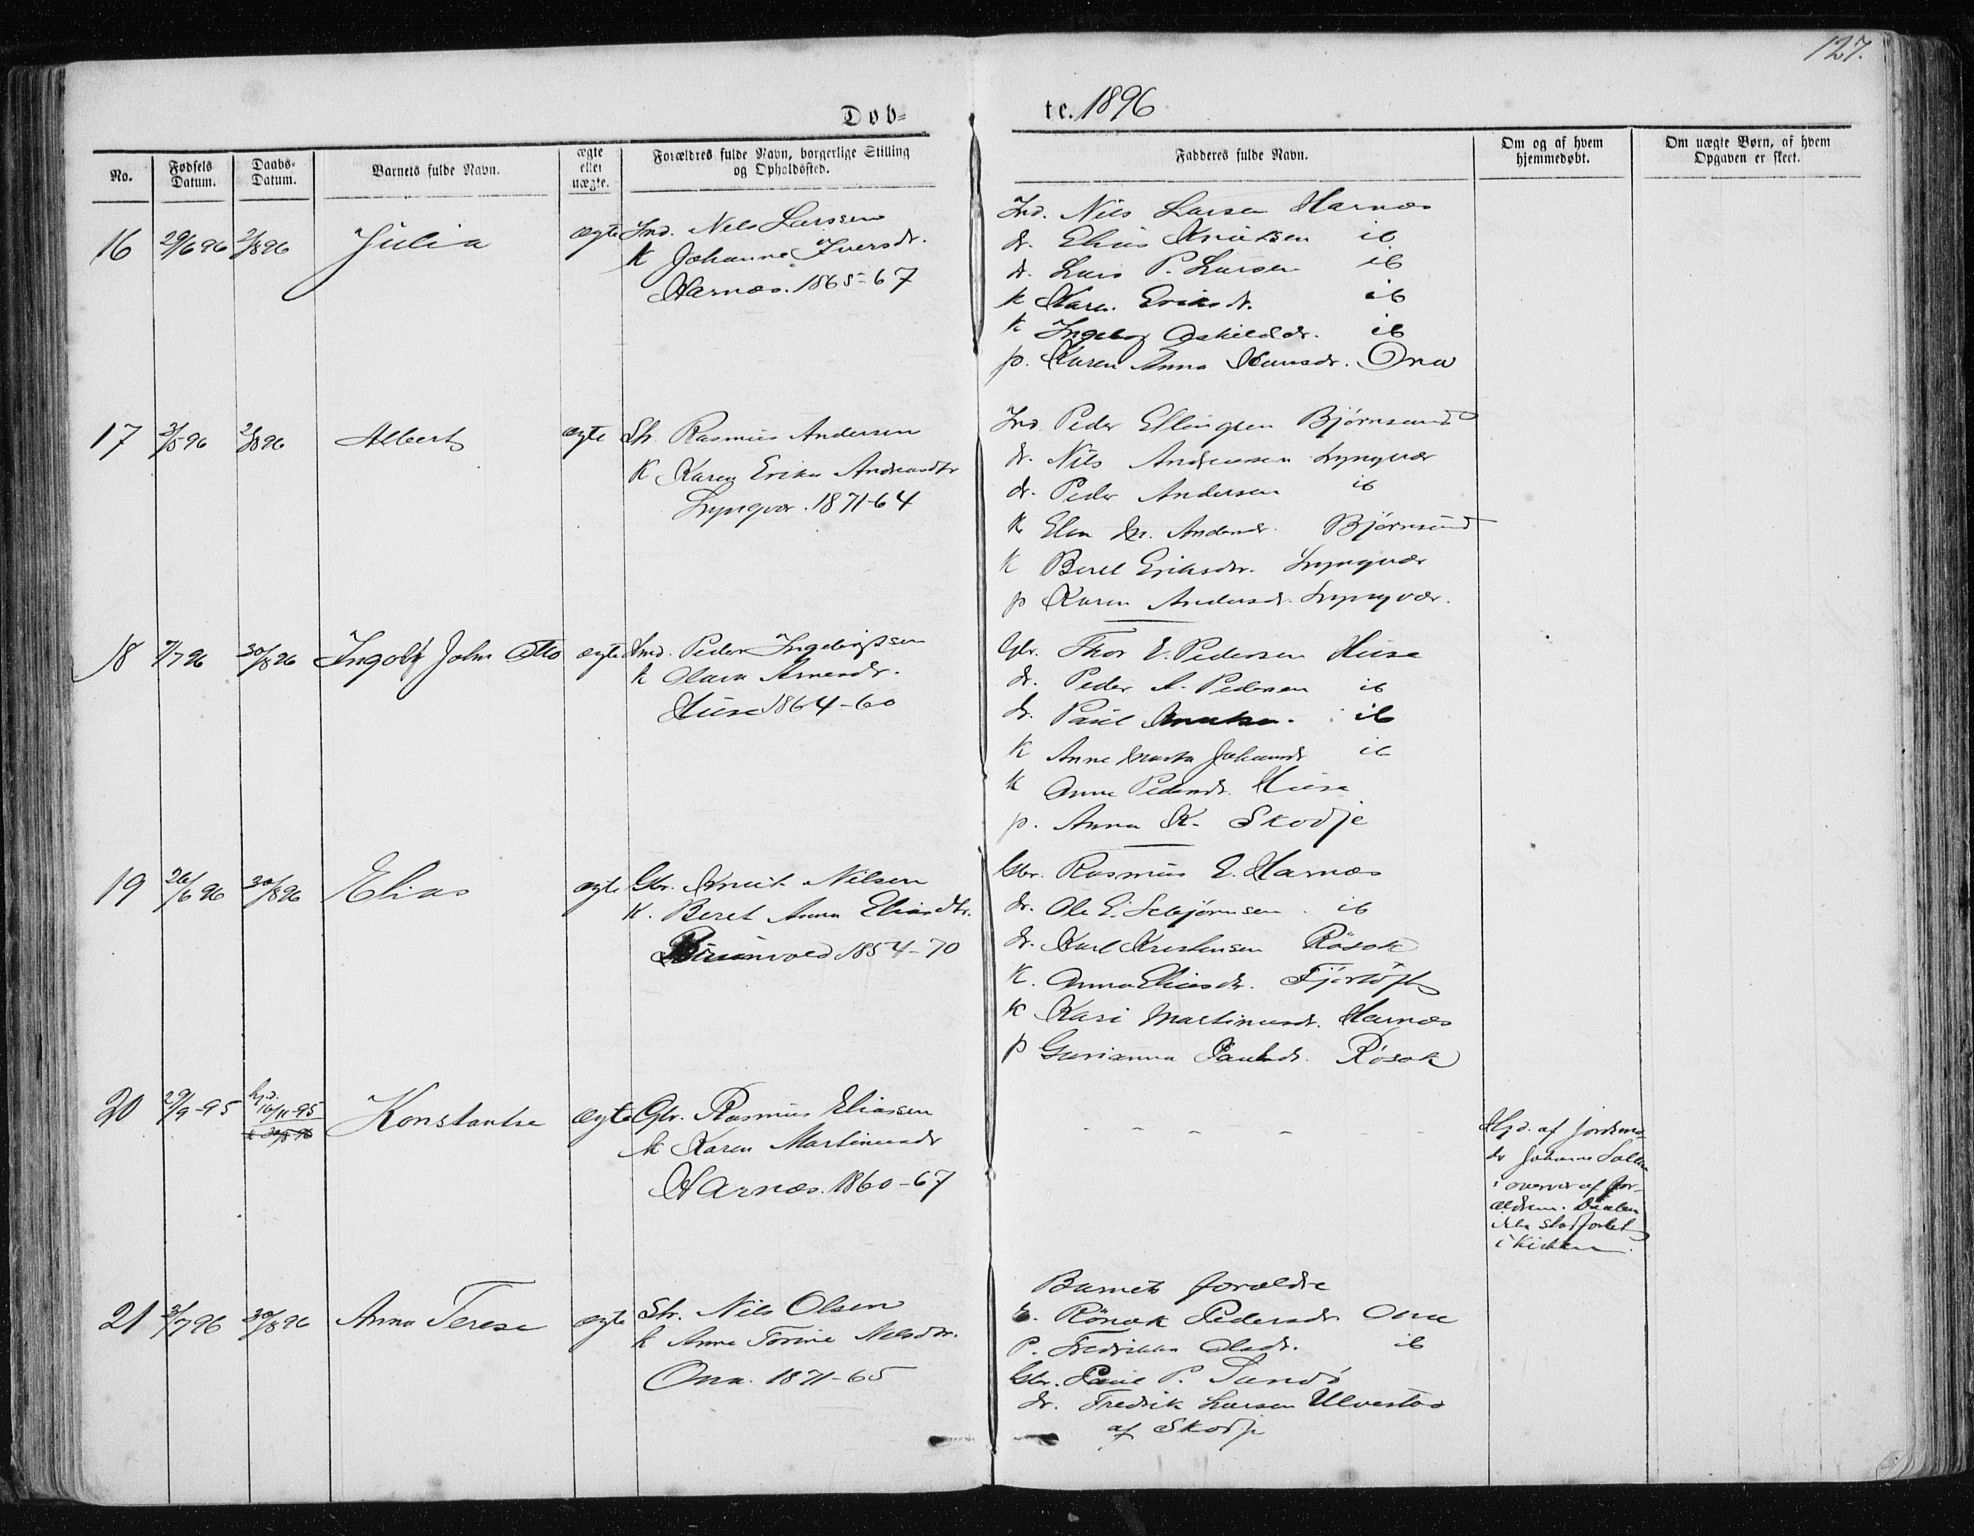 127.
Døb= te. 1896
No.
Fødsels Datum.
Daabs= Datum.
Barnets fulde Navn.
ægte eller uægte.
Forældres fulde Navn, borgerlige Stilling og Opholdssted.
Fadderes fulde Navn.
Om og af hvem hjemmedøbt.
Om uægte Børn, af hvem Opgaven er skeet.
16 29/6 96 2/8 96 Julia ægte Ind. Nels Larssen
K Johanne Iversdr.
Harnæs. 1865-67
Ind. Nils Larsen Harnæs
dr. Elias Knutsen ib
dr. Lars P. Larsen ib
K Karen Eriksdr. ib
K Ingeborg Oskildsdr. ib
p. Karen Anna Hansdr. Ona
17 3/5 96 2/8 96 Albert ægte Str. Rasmus Andersen
K Karen Erika Andreasdtr
Lyngvær. 1871-64
Ind Peder Ellingsen Bjørnsund
dr. Nils Andreassen Lyngvær
dr. Peder Andersen ib
K Elen M. Andersdr. Bjørnsund
K Beret Eriksdr. Lyngvær
p Karen Andersdr. Lyngvær.
18 7/7 96 30/8 96 Ingolf John Otto ægte Ind. Peder Ingebrigtsen
K Olava Arnesdr.
Huse 1864-60
Gbr. Thor E. Pedersen Huse
dr. Peder A. Pedersen ib
dr. Paul ib
K Anne Marta Johansdr ib
K Anne Pedersdr. Huse
p. Anna K. Skodje
19 26/6 96 30/8 96 Elias ægte Gbr. Knut Nilsen
K. Beret Anna Eliasdtr.
1854-70
Gbr. Rasmus E. Harnæs
dr. Ole E. Sebjørnsen ib
dr. Karl Kristensen Røsok
K. Anna Eliasdr. Fjørtoft
K Kari Martinusdr. Harnæs
p Gurianna Paulsdr. Røsok
20 29/9-95 hjd. 16/11-95 Konstantse ægte Gbr. Rasmus Eliassen
k 30/8 96
K Karen Martinusdr
Harnæs. 1860-67
- - - - - - -
Hjd. af Jordemo-
der Johanne
i overvær af for-
ældrene. Daaben
ikke stadfæstet
i Kirken.
21 3/7 96 30/8 96 Anna Terese ægte Str. Nils Olsen
k Anne Torine Nilsdr.
Ona. 1871-65
Barnets forældre
E. Rønok Pedersdr Ona
P. Fredrikka Olsdr. ib
Gbr. Paul P. Sandø
dr. Fredrik Larsen Ulvestad
af Skodje